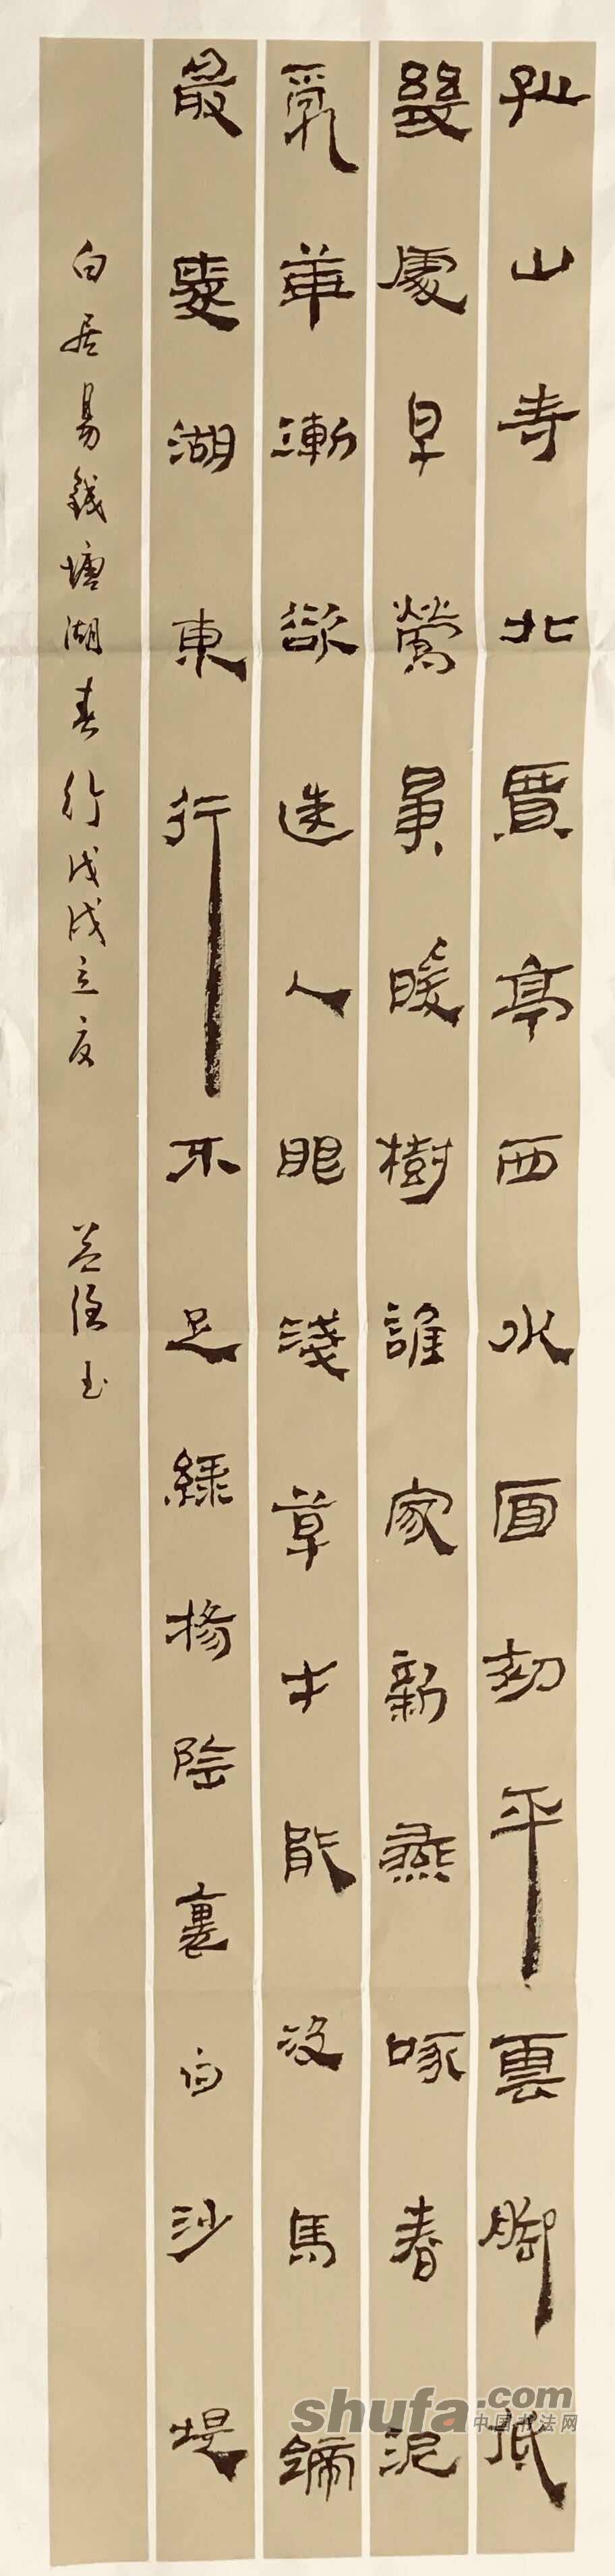 孤山寺北賈亭西水面初平雲脚低
幾處早鶯爭暖樹誰家新燕啄春泥
亂華漸欲迷人眼淺草才能沒馬蹄
最愛湖東行不足綠楊陰裏白沙堤
白居易錢塘湖春行戊戌立夏
shufa.com
中国书法网